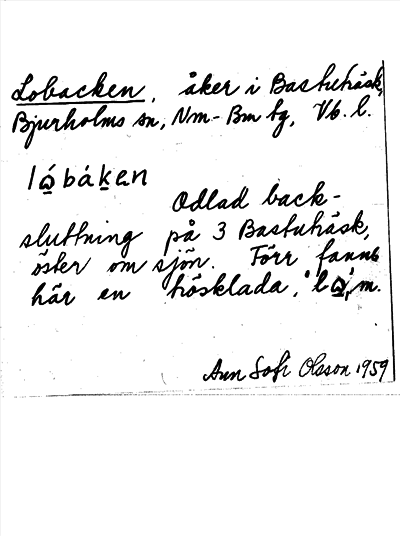 Lobacken, åker i Bastuträsk,
Bjurholms sn, Nm-Bm tg, Vb. l.
Odlad back-
sluttning på 3 Bastuträsk,
öster om sjön. Förr fanns
här en hösklada, m.
Ann Sofi Olsson 1959